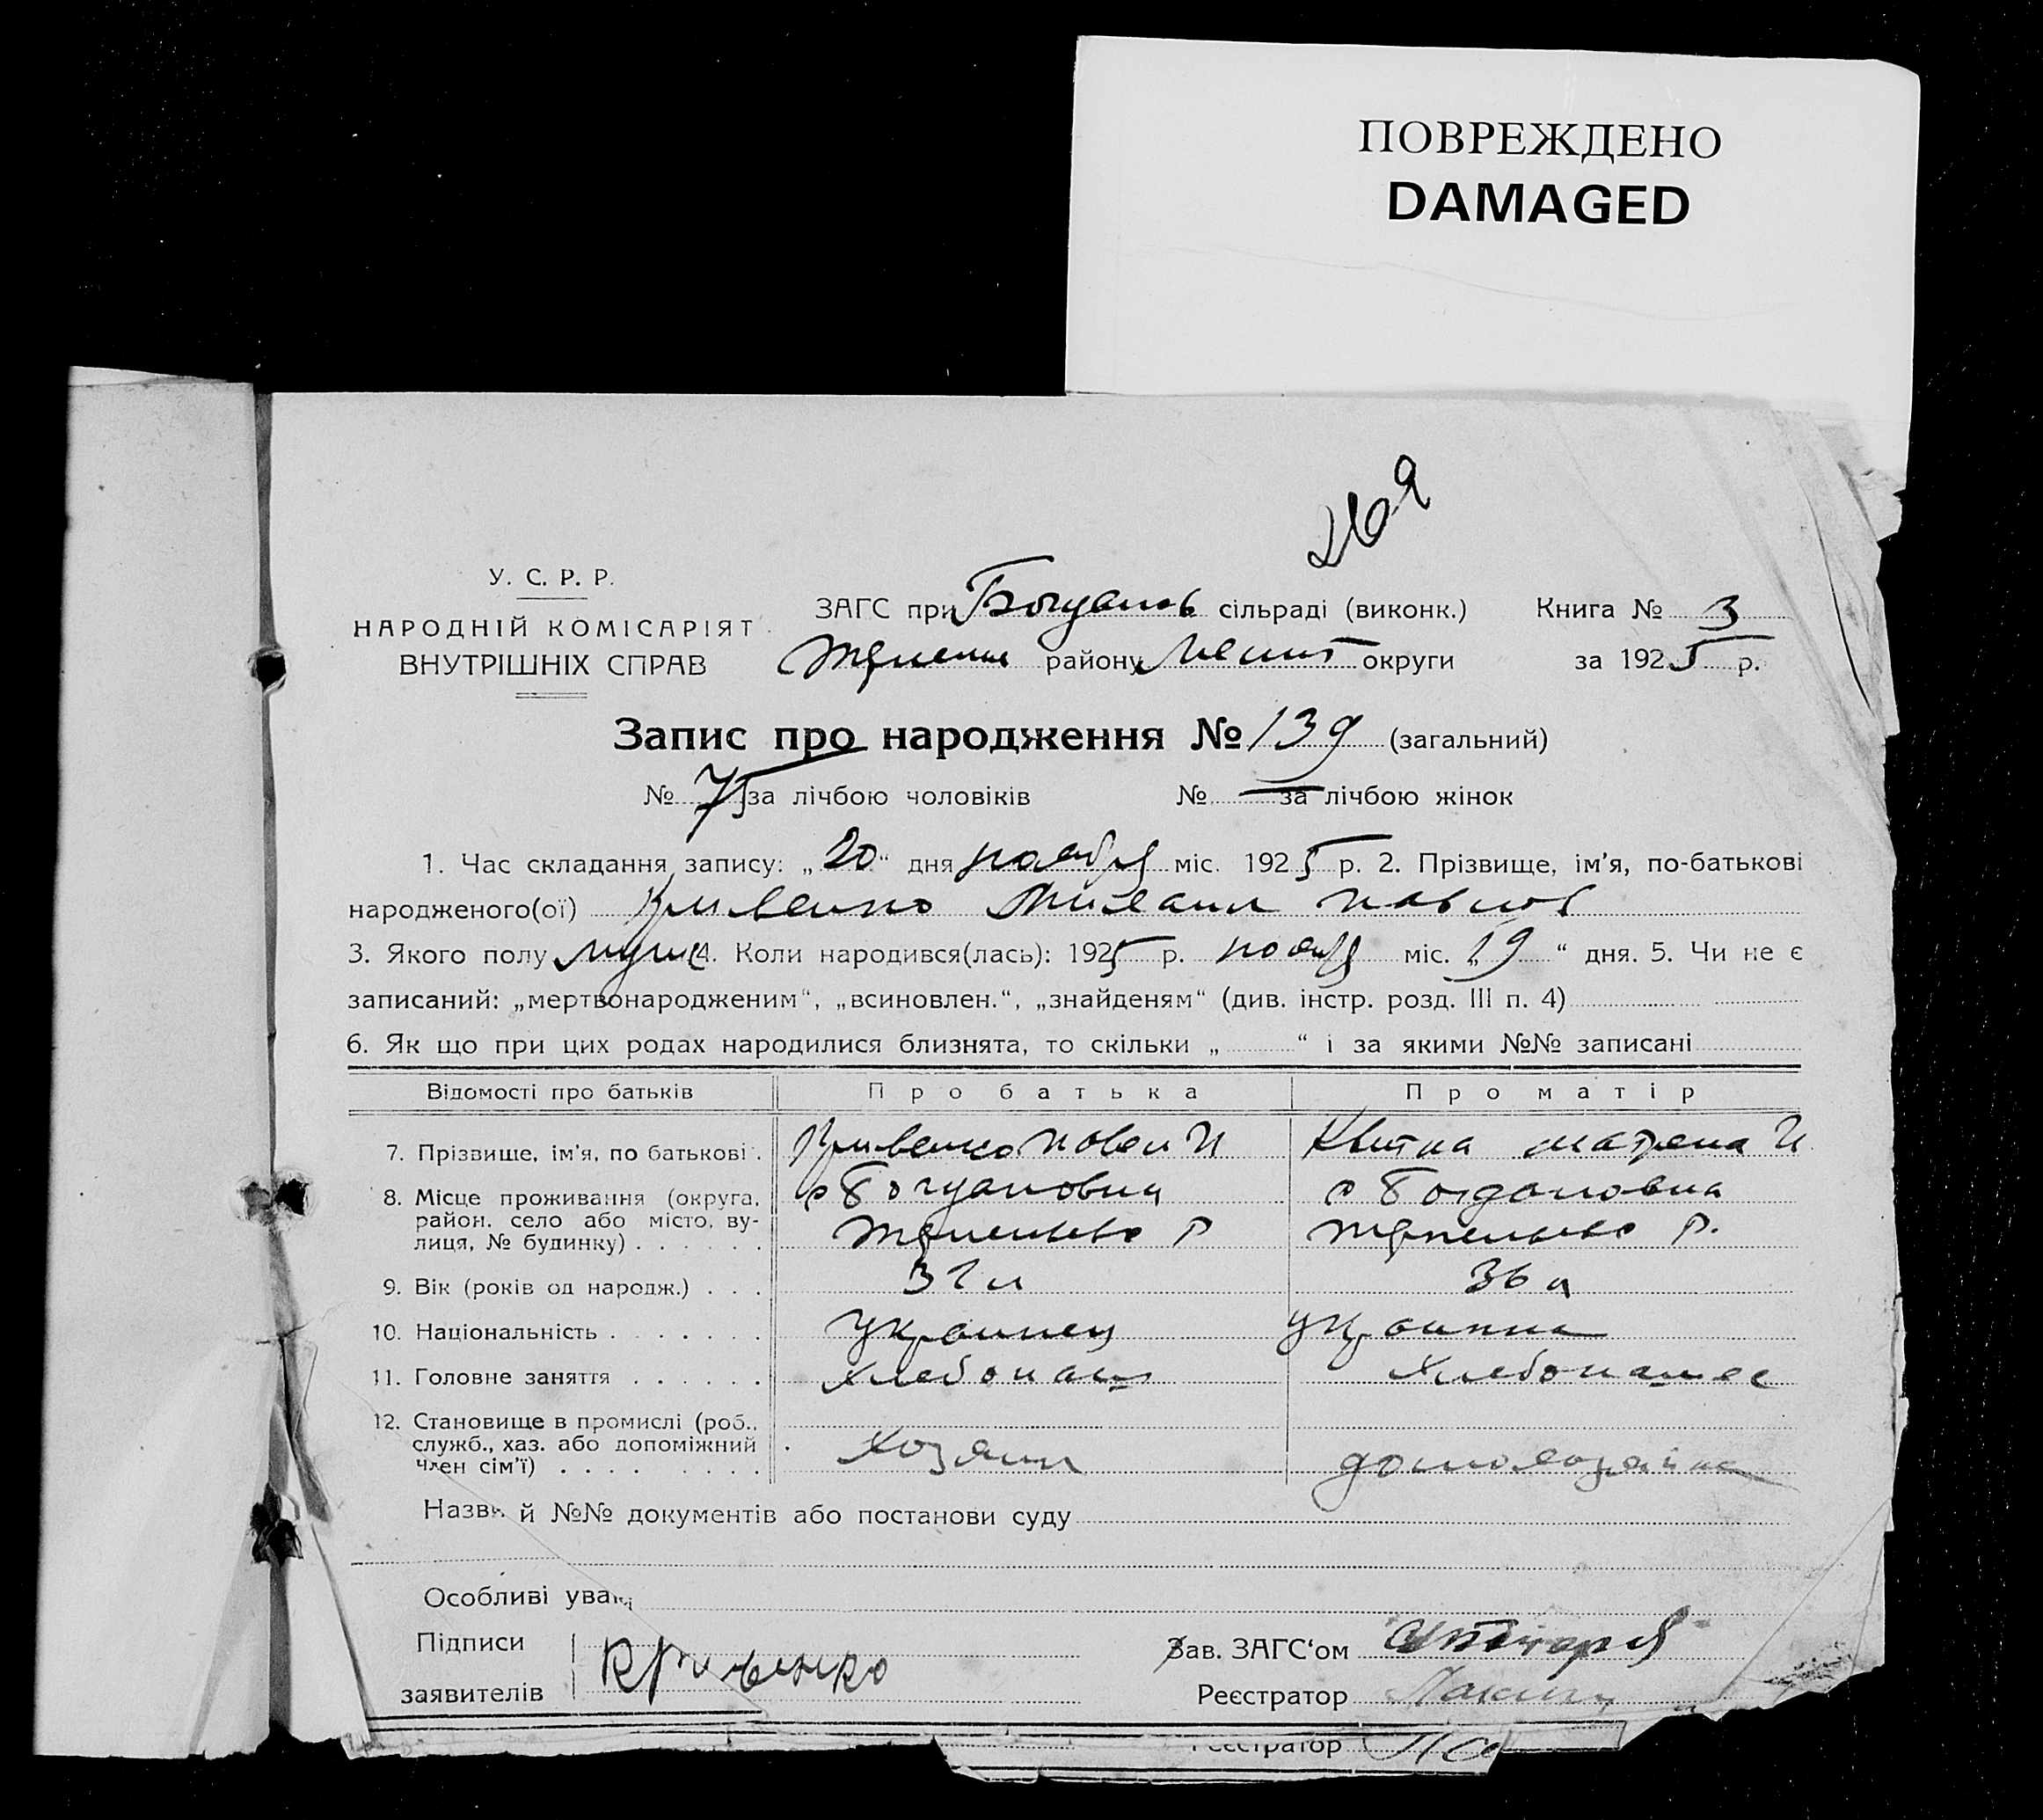 ПОВРЕЖДЕНО
DAMAGED
У. С. Р. Р.
НАРОДНІЙ КОМІСАРІЯТ
ВНУТРІШНІХ СПРАВ
ЗАГС при сільраді (виконк.) Книга № 3
району округи за 1925 р.
Запис про народження № 139 (загальний)
№ 75 за лічбою чоловіків № — за лічбою жінок
1. Час складання запису: „20“ дня ноября міс. 1925 р. 2. Прізвище, ім’я, по-батькові
народженого(ої) Кривенко Михаил Павлов
3. Якого полу муж 4. Коли народився(лась): 1925 р. ноябр міс. „19“ дня. 5. Чи не є
записаний: „мертвонародженим“, „всиновлен.“, „знайденям“ (див. інстр. розд. III п. 4)
6. Як що при цих родах народилися близнята, то скільки „ “ і за якими №№ записані
Відомості про батьків Про батька Про матір
7. Прізвище, ім’я, по батькові. Кривенко Повел И Квитка Матрена И
8. Місце проживання (округа, с Богдановка с Богдановка
район, село або місто, ву-
лиця, № будинку) . . . . . . Р Р.
9. Вік (років од народж.) . . . 37 л 36 л
10. Національність . . . . . . . украинец украинка
11. Головне заняття . . . . . . хлебопаш хлебопашес
12. Становище в промислі (роб.,
служб., хаз. або допоміжний
член сім’ї) . . . . . . . . хозяин домохозяйка
Назви й №№ документів або постанови суду
Особливі уваги
Підписи Кривенко Зав. ЗАГС‘ом
заявителів Реєстратор
Реєстратор